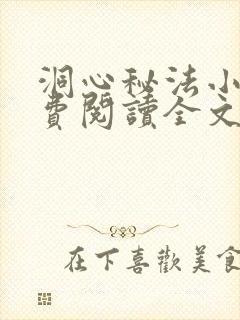 洞心秘法小
費閱讀全文
在下喜歡美食